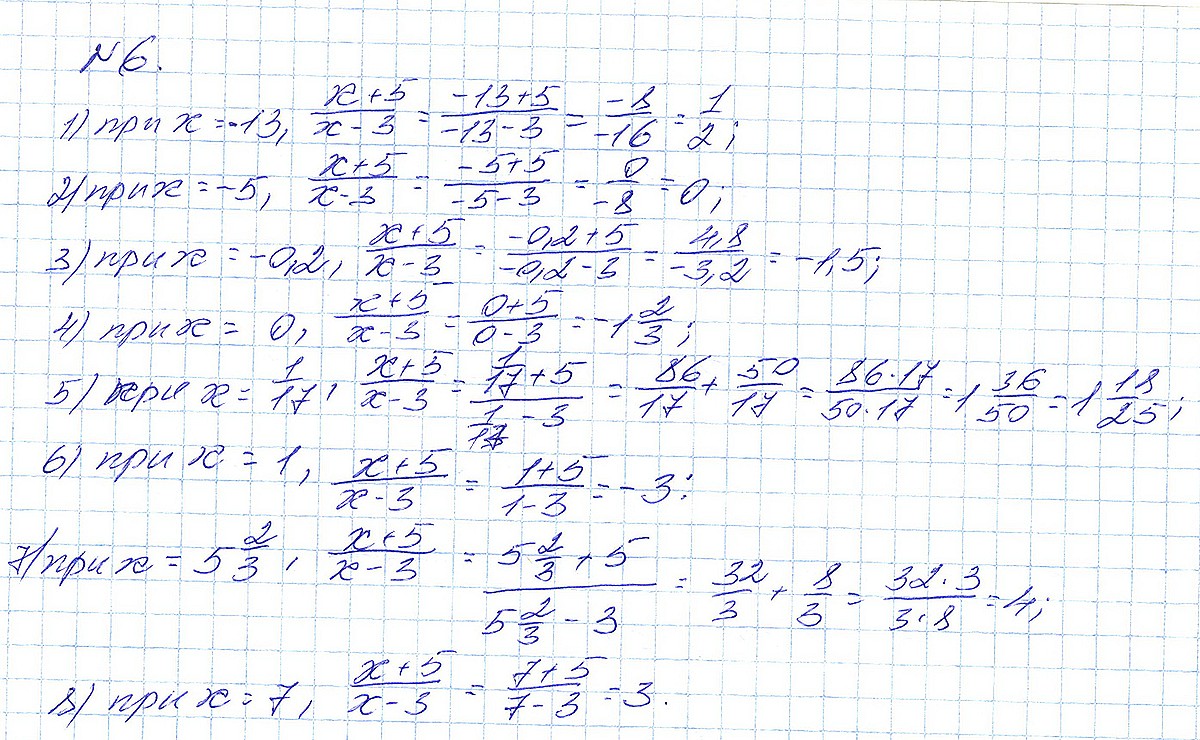 № 6.
1) при x = -13, (x+5)/(x-3) = (-13+5)/(-13-3) = (-8)/(-16) = 1/2;
2) при x = -5, (x+5)/(x-3) = (-5+5)/(-5-3) = 0/(-8) = 0;
3) при x = -0,2, (x+5)/(x-3) = (-0,2+5)/(-0,2-3) = 4,8/(-3,2) = -1,5;
4) при x = 0, (x+5)/(x-3) = (0+5)/(0-3) = -1 2/3;
5) при x = 1/17, (x+5)/(x-3) = (1/17+5)/(1/17-3) = 86/17 + 50/17 = (86·17)/(50·17) = 1 36/50 = 1 18/25;
6) при x = 1, (x+5)/(x-3) = (1+5)/(1-3) = -3:
7) при x = 5 2/3, (x+5)/(x-3) = (5 2/3 + 5)/(5 2/3 - 3) = 32/3 + 8/3 = (32·3)/(3·8) = 4;
8) при x = 7, (x+5)/(x-3) = (7+5)/(7-3) = 3.